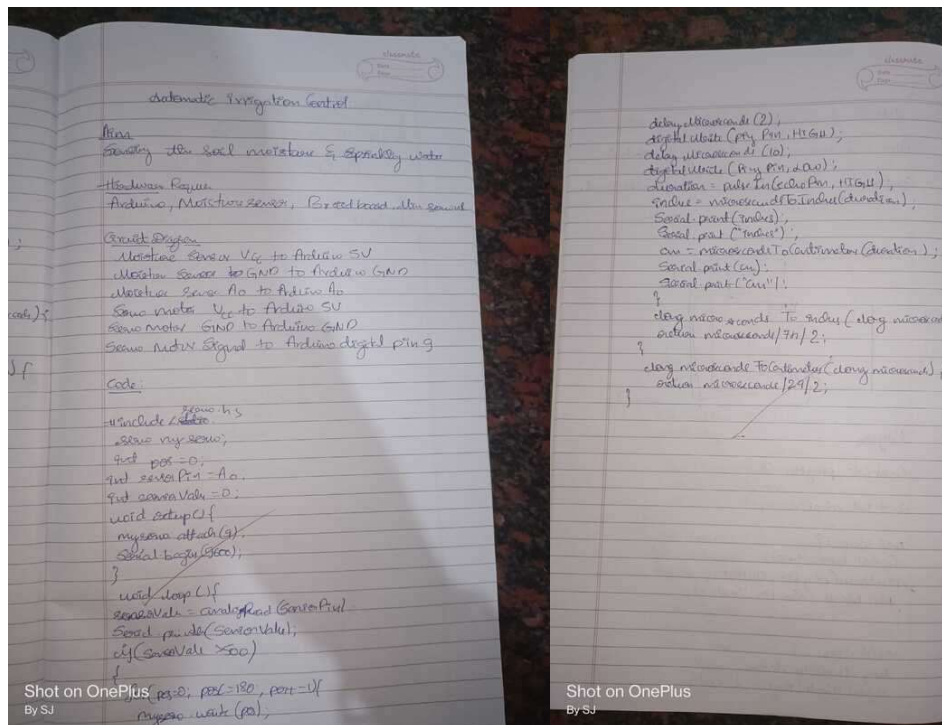 classmate
Date
Page
Automatic Irrigation Control
Aim
Sensing the soil moisture & sprinkling water
Hardware Requir
Arduino, Moisture sensor, Breadboard
Circuit Diagram
Moisture Sensor VCC to Arduino 5V
Moisture Sensor to GND to Arduino GND
Moisture Sensor A0 to Arduino A0
Servo motor VCC to Arduino 5V
Servo motor GND to Arduino GND
Servo Motor Signal to Arduino digital pin 9
Code:
#include <servo.h>
servo myservo;
int pos=0;
int sensorPin=A0.
int sensorValue=0;
void setup(){
myservo attach(9).
Serial begin(9600);
}
void loop(){
sensorValue = analogRead(SensorPin)
Serial (SensorValue);
if(sensorValue >500)
{
for(pos=0; pos<=180,
myservo write(pos);
Shot on OnePlus
By SJ
classmate
Date
Page
delay Microseconds (2);
digital Write (ping Pin, HIGH);
delay microseconds (10);
digital Write (Ping Pin, LOW);
duration = pulseIn(echoPin, HIGH),
inches = microsecondsToInches(duration),
Serial.print(inches),
Serial.print("inches");
cm = microsecondsToCentimeter(duration);
Serial print(cm);
Serial.print("cm");
}
long microseconds To inches (long
return microseconds/74/2;
}
long microseconds ToCentimeter(long microseconds)
return microseconds/29/2;
}
Shot on OnePlus
By SJ